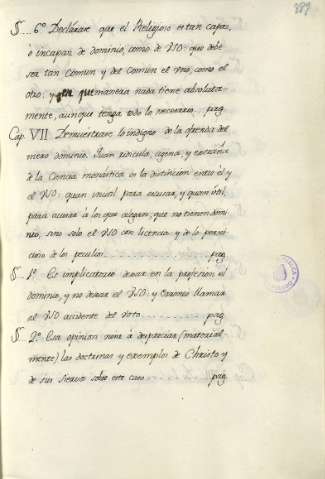 389
§.. 6º Declárase que el Religioso es tan capaz,
ò incapaz de dominio, como de USO: que debe
ser tan comun y del comun el uno, como el
otro: y en que manera nada tiene absoluta-
mente, aunque tenga todo lo necesario. pag
Cap. VII Demuestrase lo indigno de la ofensa del
mero dominio. Quan ridicula, agena, y estraña
de la Ciencia monástica es la distincion entre èl y
el USO: quan inutil para escusar, y quan útil
para acusar à los que alegan, que no tienen domi-
nio, sino solo el USO con licencia: y de lo perni-
cioso de los peculios. pag
§.. 1º Es implicatorio dexar en la profesion el
dominio, y no dexar el USO: y llamar
al USO accidente del Voto. pag
§.. 2º Esa opinion viene à despreciar (material-
mente) las doctrinas y exemplos de Christo y
de sus Siervos sobre este caso pag.